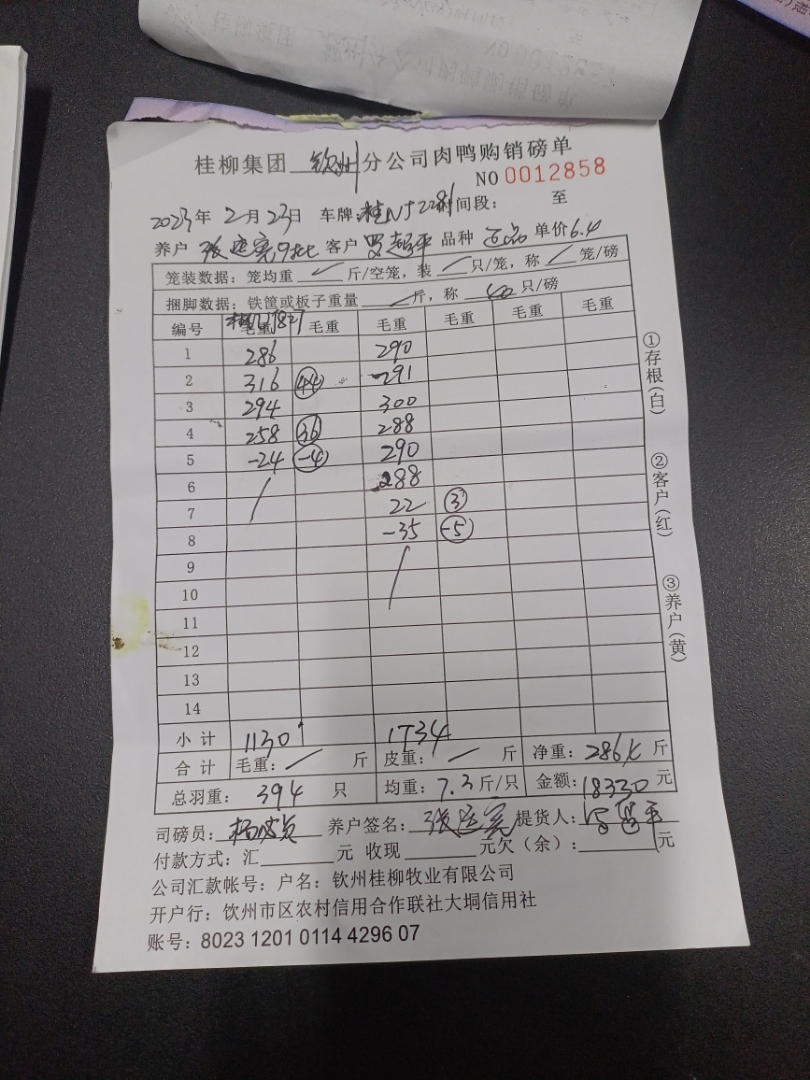 桂柳集团 钦州 分公司肉鸭购销磅单
NO 0012858
2023年 2月 23日 车牌: 桂N 时间段: 至
养户 客户 罗超平 品种 单价 6.4
笼装数据: 笼均重 / 斤/空笼, 装 / 只/笼, 称 / 笼/磅
捆脚数据: 铁筐或板子重量 / 斤, 称 40 只/磅
编号 毛重 毛重 毛重 毛重 毛重 毛重
1 286 290
2 316 44 291
3 294 300
4 258 36 288
5 -24 -4 290
6 / 288
7 22 3
8 -35 -5
9 /
10
11
12
13
14
小计 1130 1734
合计 毛重: / 斤 皮重: / 斤 净重: 2864 斤
总羽重: 394 只 均重: 7.3 斤/只 金额: 18330 元
司磅员: 养户签名: 提货人:
付款方式: 汇 元 收现 元欠(余): 元
公司汇款帐号: 户名: 钦州桂柳牧业有限公司
开户行: 钦州市区农村信用合作联社大垌信用社
账号: 8023 1201 0114 4296 07
①存根(白)
②客户(红)
③养户(黄)